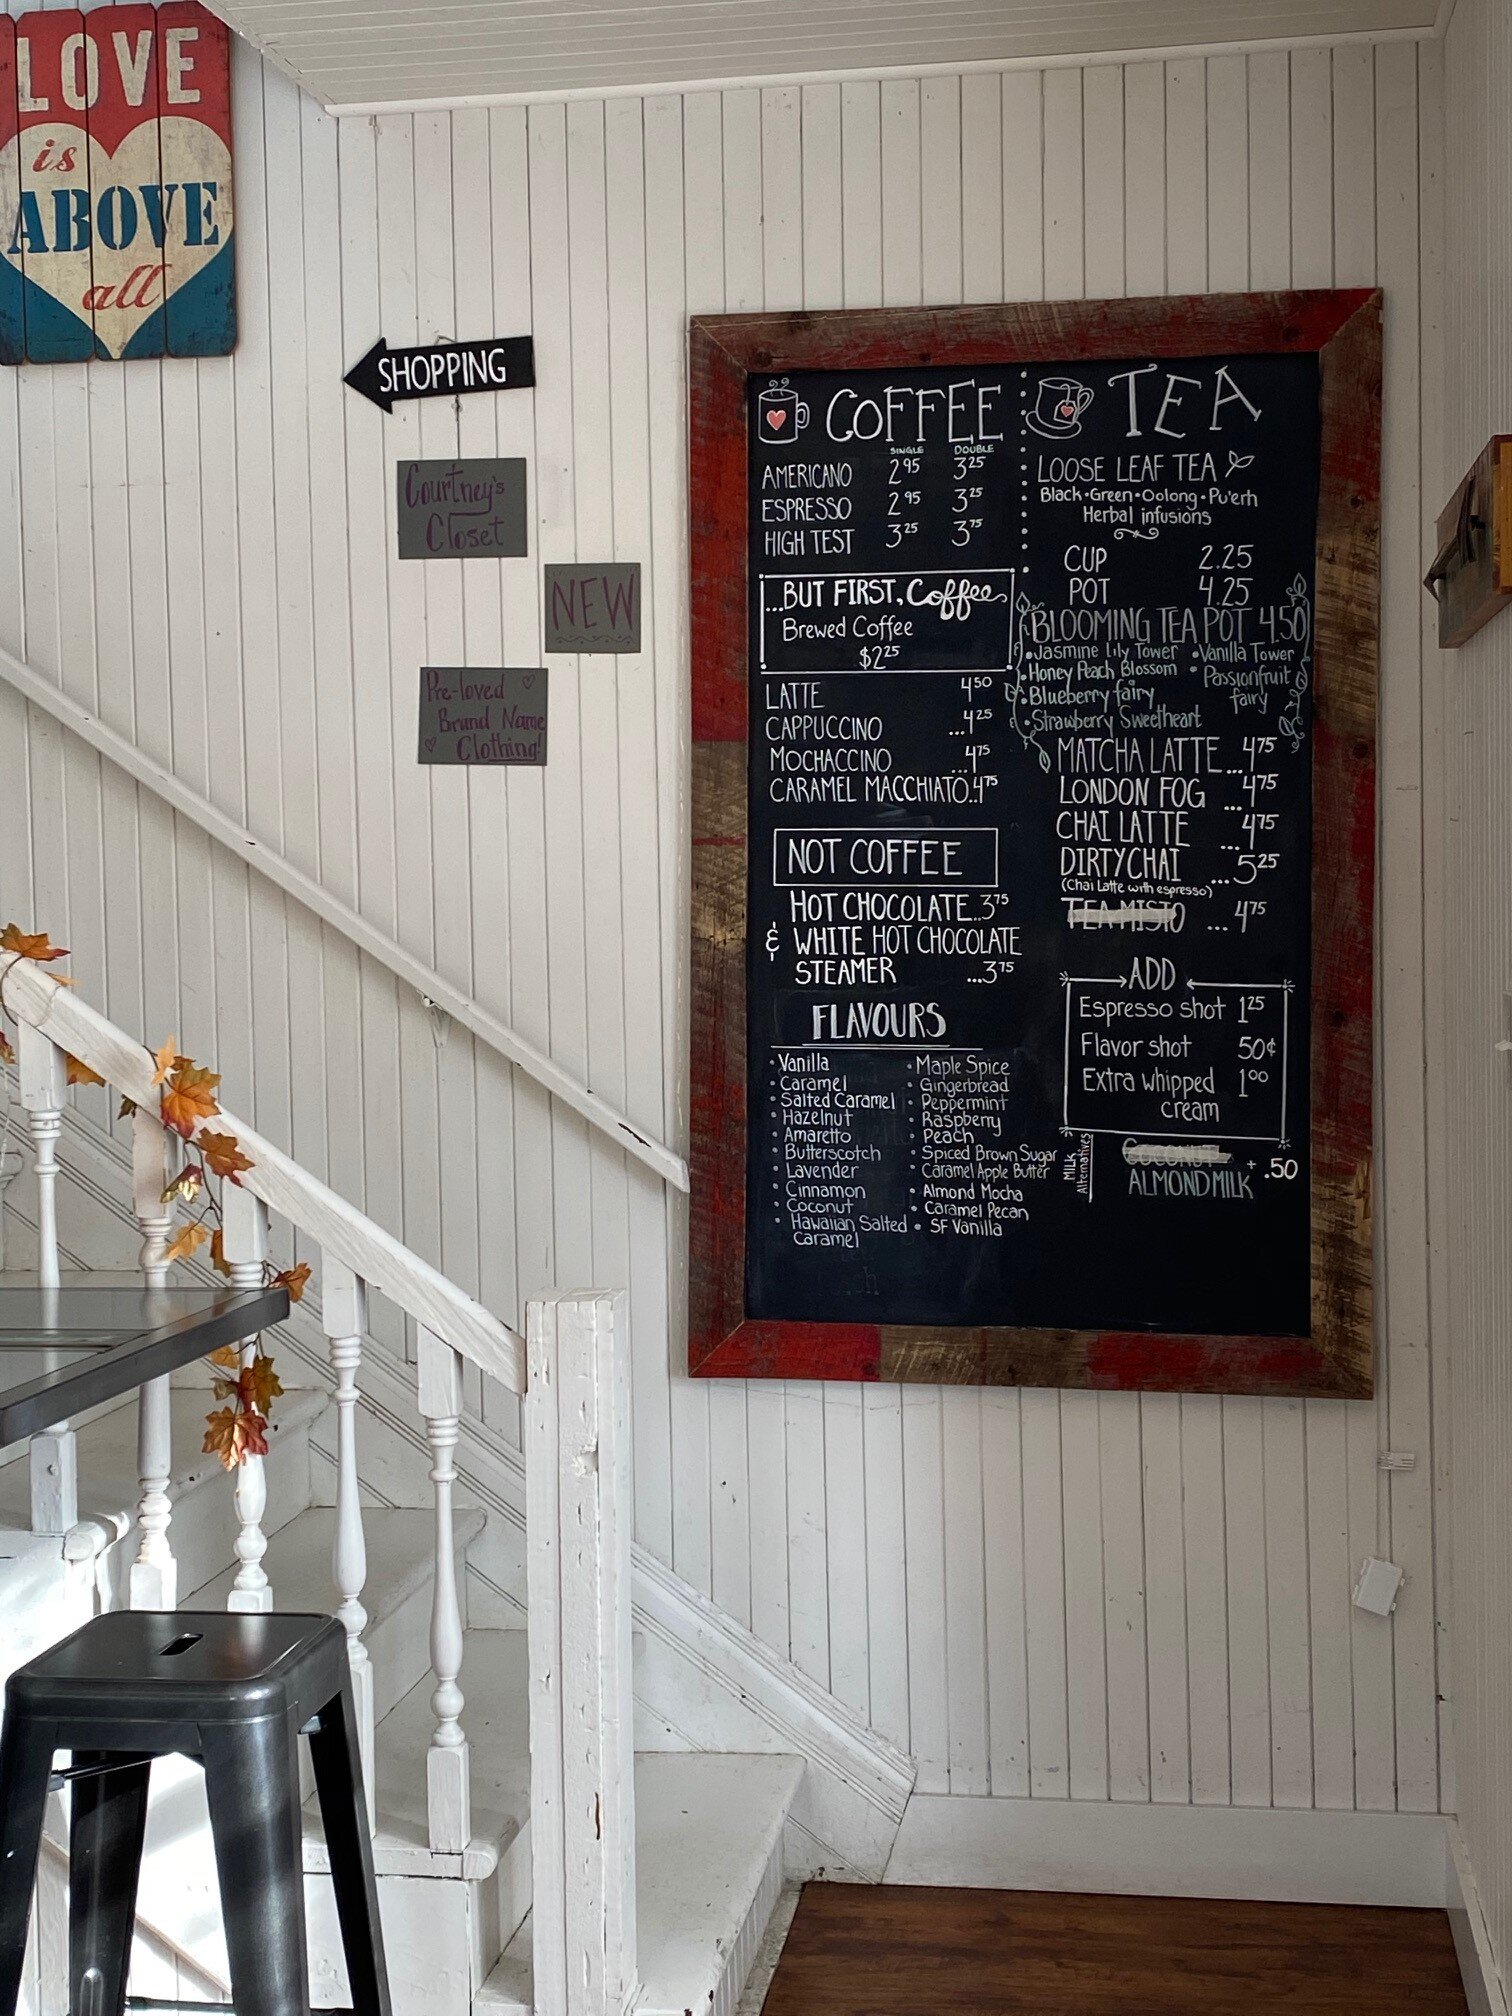 LOVE
is
ABOVE
all
SHOPPING
Courtney's
Closet
NEW
Pre-loved
Brand Name
Clothing!
COFFEE
SINGLE DOUBLE
AMERICANO 2.95 3.25
ESPRESSO 2.95 3.25
HIGH TEST 3.25 3.75
...BUT FIRST, Coffee
Brewed Coffee
$2.25
LATTE 4.50
CAPPUCCINO ...4.25
MOCHACCINO ...4.75
CARAMEL MACCHIATO..4.75
NOT COFFEE
HOT CHOCOLATE..3.75
& WHITE HOT CHOCOLATE
STEAMER ...3.75
FLAVOURS
• Vanilla
• Caramel
• Salted Caramel
• Hazelnut
• Amaretto
• Butterscotch
• Lavender
• Cinnamon
• Coconut
• Hawaiian Salted
Caramel
• Maple Spice
• Gingerbread
• Peppermint
• Raspberry
• Peach
• Spiced Brown Sugar
• Caramel Apple Butter
• Almond Mocha
• Caramel Pecan
• SF Vanilla
TEA
LOOSE LEAF TEA
Black • Green • Oolong • Pu'erh
Herbal infusions
CUP 2.25
POT 4.25
BLOOMING TEA POT 4.50
• Jasmine Lily Tower
• Honey Peach Blossom
• Blueberry fairy
• Strawberry Sweetheart
• Vanilla Tower
• Passionfruit
fairy
MATCHA LATTE...4.75
LONDON FOG ...4.75
CHAI LATTE ...4.75
DIRTY CHAI ...5.25
(Chai Latte with espresso)
TEA MISTO ...4.75
ADD
Espresso shot 1.25
Flavor shot 50¢
Extra whipped 1.00
cream
MILK
Alternatives
COCONUT
ALMOND MILK + .50